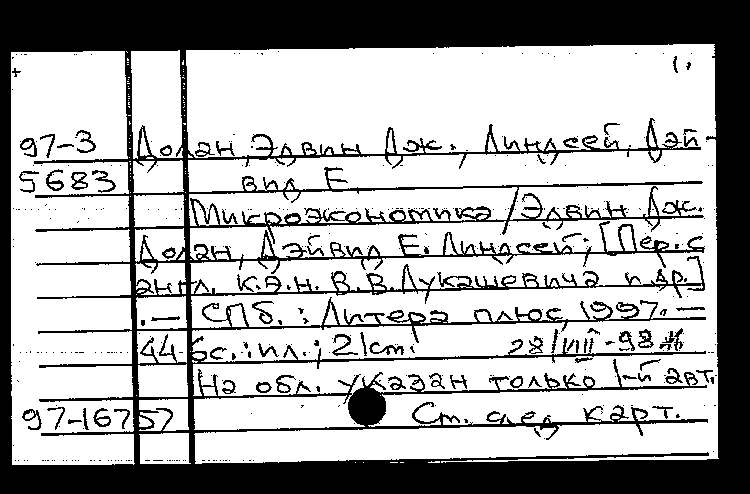 97-3 Долан, Элвин Дж., Линдсей, Дэй-
5683 вид Е.
Микроэкономика / Элвин Дж.
Долан, Дэйвид Е. Линдсей; [Пер. с
англ. к.э.н. В.В. Лукашевича и др.]
. — СПб. : Литера плюс, 1997. —
446 с. : ил. ; 21 см. 28/VII-98
На обл. указан только 1-й авт.
97-16757 См. след карт.